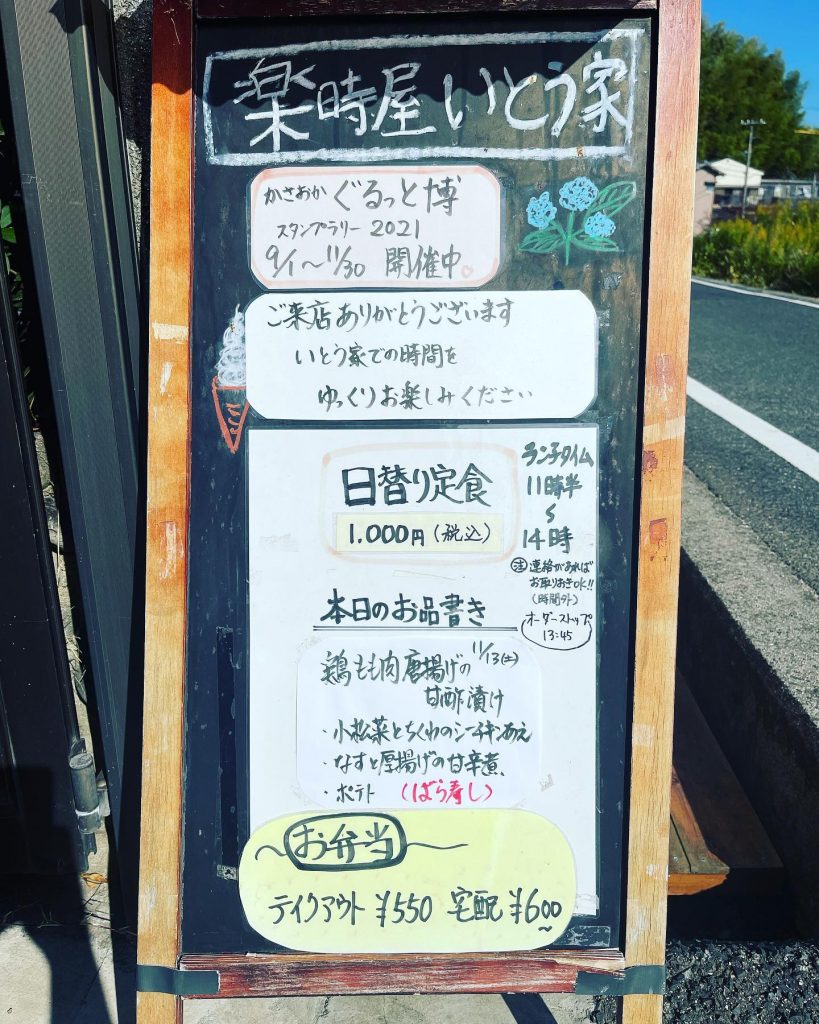 楽時屋 いとう家
かさおか ぐるっと博
スタンプラリー 2021
9/1〜11/30 開催中。
ご来店ありがとうございます
いとう家での時間を
ゆっくりお楽しみください
日替り定食
1.000円(税込)
ランチタイム
11時半
〜
14時
注 連絡があれば
お取りおきOK!!
(時間外)
オーダーストップ
13:45
本日のお品書き
11/13(土)
鶏もも肉唐揚げの
甘酢漬け
・小松菜とちくわのシーチキンあえ
・なすと厚揚げの甘辛煮
・ポテト (ばら寿し)
お弁当
テイクアウト ¥550 宅配 ¥600〜